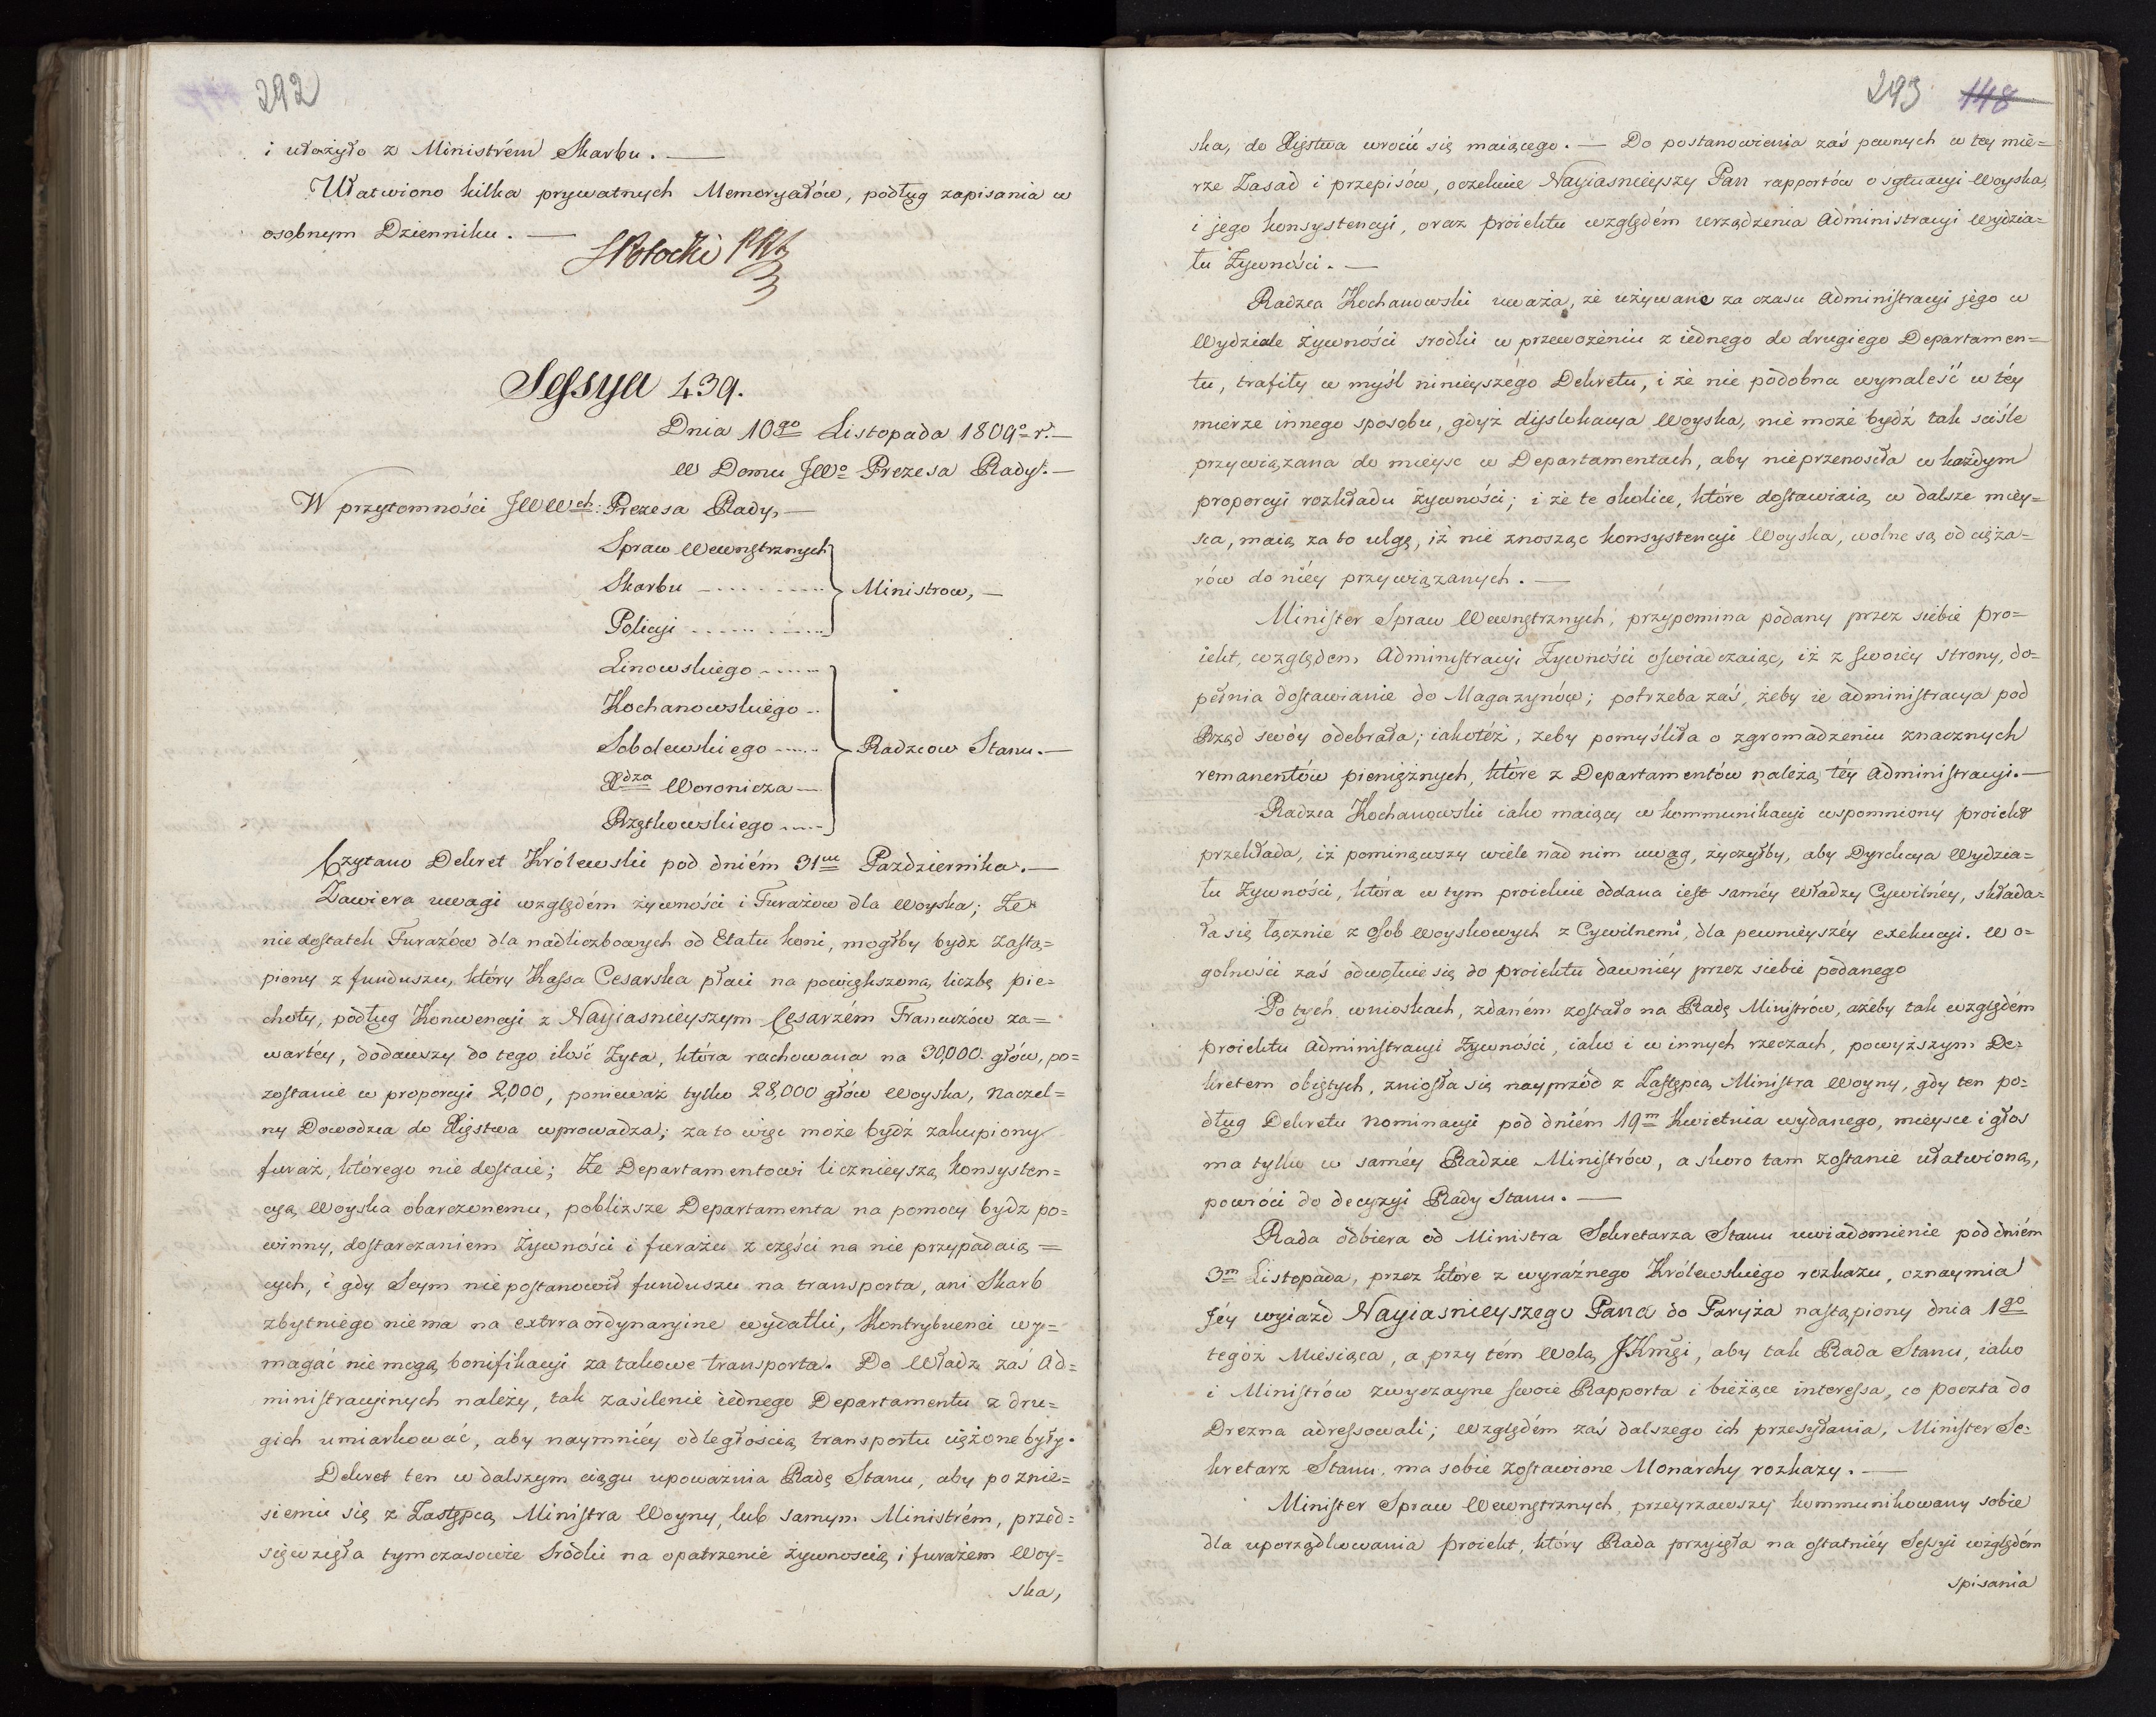 292
i ułożyło z Ministrém Skarbu. —
Ułatwiono kilka prywatnych Memoryałów, podług zapisania w
osobnym Dzienniku. —
SPotocki PRS
Sessya 439.
Dnia 10go Listopada 1809o r. —
w Domu JWo Prezesa Rady. —
W przytomności JWWch: Prezesa Rady, —
Spraw Wewnętrznych
Skarbu - . . . . . . . . . Ministrow, —
Policyi . . . . . . . . . .
Linowskiego . . . . . .
Kochanowskiego . .
Sobolewskiego . . . . . Radzcow Stanu. —
Xdza Woronicza —
Rzętkowskiego . . . . .
Czytano Dekret Królewski pod dniém 31m Pazdziernika. —
Zawiera uwagi względém żywności i Furażow dla Woyska; Że
niedostatek Furażów dla nadliczbowych od Etatu koni, mogłby bydz zastą=
piony z funduszu, który Kassa Cesarska płaci na powiększoną liczbę pie=
choty, podług Konwencyi z Nayiasnieyszym Cesarzém Francuzów za=
wartéy, dodawszy do tego ilość Żyta, która rachowana na 30,000. głów, po=
zostanie w proporcyi 2,000, ponieważ tylko 28,000 głów Woyska, Naczel=
ny Dowodzca do Xięstwa wprowadza; za to więc może bydź zakupiony
furaż, którego nie dostaie; Że Departamentowi licznieyszą konsysten=
cyą Woyska obarczonemu, pobliższe Departamenta na pomocy bydz po=
winny, dostarczaniem Żywności i furażu z części na nie przypadaią =
cych, i gdy Seym niepostanowił funduszu na transporta, ani Skarb
zbytniego niema na extraordynaryine wydatki, Kontrybuenci wy=
magać nie mogą bonifikacyi za takowe transporta. Do Władz zaś Ad=
ministracyinych należy, tak zasilenie iednego Departamentu z dru=
gich umiarkować, aby naymniéy odległością transportu ciążone były.
Dekret ten w dalszym ciągu upoważnia Radę Stanu, aby po znie=
sieniu się z Zastępcą Ministra Woyny, lub samym Ministrém, przed=
sięwzięła tymczasowie srodki na opatrzenie żywnoscią i furażem Woy=
ska,
293 148
ska, do Xięstwa wrocić się maiącego. — Do postanowienia zaś pewnych w tey mie=
rze Zasad i przepisów, oczekuie Nayiasnieyszy Pan rapportów o sytuacyi Woyska,
i jego konsystencyi, oraz proiektu względém urządzenia Administracyi Wydzia=
łu Żywności. —
Radzca Kochanowski uważa, że używane za czasu Administracyi jego w
Wydziale żywności srodki w przewożeniu z iednego do drugiego Departamen=
tu, trafiły w myśl ninieyszego Dekretu, i że nie podobna wynaleść w téy
mierze innego sposobu, gdyż dyslokacya Woyska, nie może bydź tak sciśle
przywiązana do mieysc w Departamentach, aby nieprzenosiła w każdym
proporcyi rozkładu żywności; i że te okolice, które dostawiaią w dalsze miey=
sca, maią za to ulgę, iż nie znosząc konsystencyi Woyska, wolne są od cięża=
rów do niéy przywiązanych. —
Minister Spraw Wewnętrznych, przypomina podany przez siebie pro=
iekt, względem Administracyi Żywności oświadczaiąc, iż z swoiey strony, do=
pełnia dostawianie do Magazynów; potrzeba zaś, żeby ie administracya pod
Rząd swóy odebrała; iakotéż, żeby pomyśliła o zgromadzeniu znacznych
remanentów pieniężnych, które z Departamentów należą téy Administracyi. —
Radzca Kochanowski iako maiący w kommunikacyi wspomniony proiekt
przekłada, iż pominąwszy wiele nad nim uwag, życzyłby, aby Dyrekcya Wydzia=
łu Żywności, która w tym proiekcie oddana iest saméy Władzy Cywilnéy, składa=
ła się łącznie z osob Woyskowych z Cywilnemi, dla pewnieyszéy exekucyi. W o=
golności zaś odwołuie się do proiektu dawniéy przez siebie podanego
Po tych wnioskach, zdaném zostało na Radę Ministrów, ażeby tak względém
proiektu Administracyi Żywności, iako i w innych rzeczach, powyższym De=
kretem obiętych, zniosła się nayprzód z Zastępcą Ministra Woyny, gdy ten po=
dług Dekretu nominacyi pod dniém 19m Kwietnia wydanego, mieysce i głos
ma tylko w saméy Radzie Ministrów, a skoro tam zostanie ułatwioną,
powróci do decyzyi Rady Stanu. —
Rada odbiera od Ministra Sekretarza Stanu uwiadomienie pod dniém
3m Listopada, przez które z wyraźnego Królewskiego rozkazu, oznaymia
Jéy wyiazd Nayiasnieyszego Pana do Paryża nastąpiony dnia 1go
tegoż Miesiąca, a przy tém Wolą JKMści, aby tak Rada Stanu, iako
i Ministrów zwyczayne swoie Rapporta i bieżące interessa, co poczta do
Drezna adressowali; względém zaś dalszego ich przesyłania, Minister Se=
kretarz Stanu, ma sobie zostawione Monarchy rozkazy. —
Minister Spraw Wewnętrznych, przeyrzawszy kommunikowany sobie
dla uporządkowania proiekt, który Rada przyięła na ostatniéy Sessyi względém
spisania